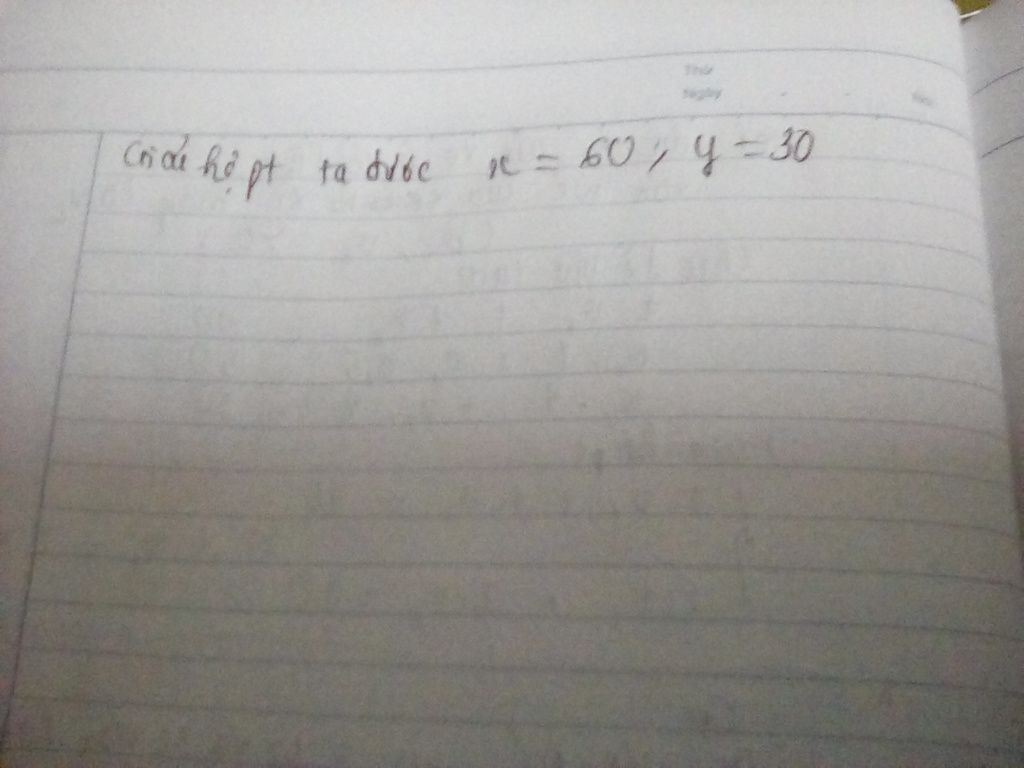 Thứ
Ngày
No.
Giải hệ pt ta được x = 60, y = 30